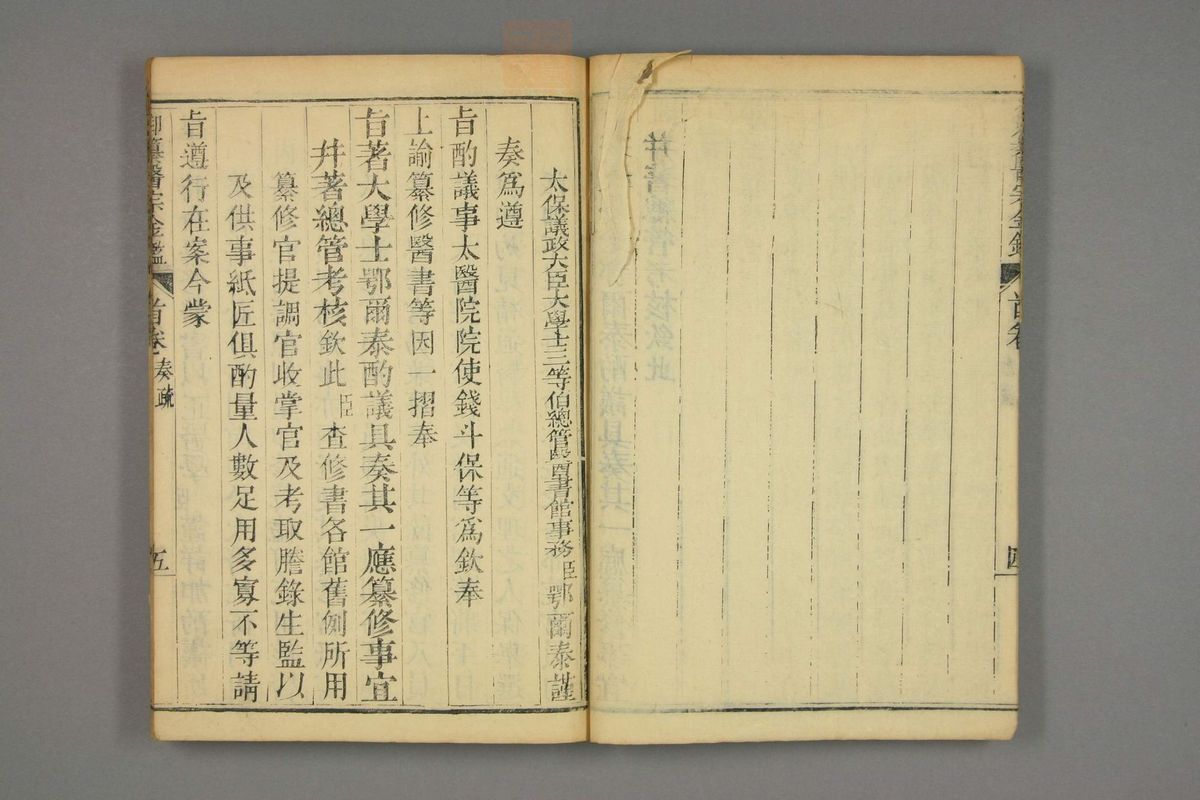 太保議政大臣大學士三等伯總管醫書館事務臣鄂爾泰謹
奏爲遵
旨酌議事太醫院院使錢斗保等爲欽奉
上諭纂修醫書等因一摺奉
旨著大學士鄂爾泰酌議具奏其一應纂修事宜
并著總管考核欽此臣查修書各館舊例所用
纂修官提調官收掌官及考取謄錄生監以
及供事紙匠俱酌量人數足用多寡不等請
旨遵行在案今蒙
御纂醫宗金鑑
首卷
奏疏
五
首卷
四